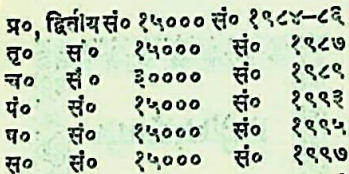 प्र०, द्वितीय सं० १५००० सं० १९८४–८६
तृ० सं० १५००० सं० १९८७
च० सं० ३०००० सं० १९८९
पं० सं० १५००० सं० १९९३
ष० सं० १५००० सं० १९९५
स० सं० १५००० सं० १९९७